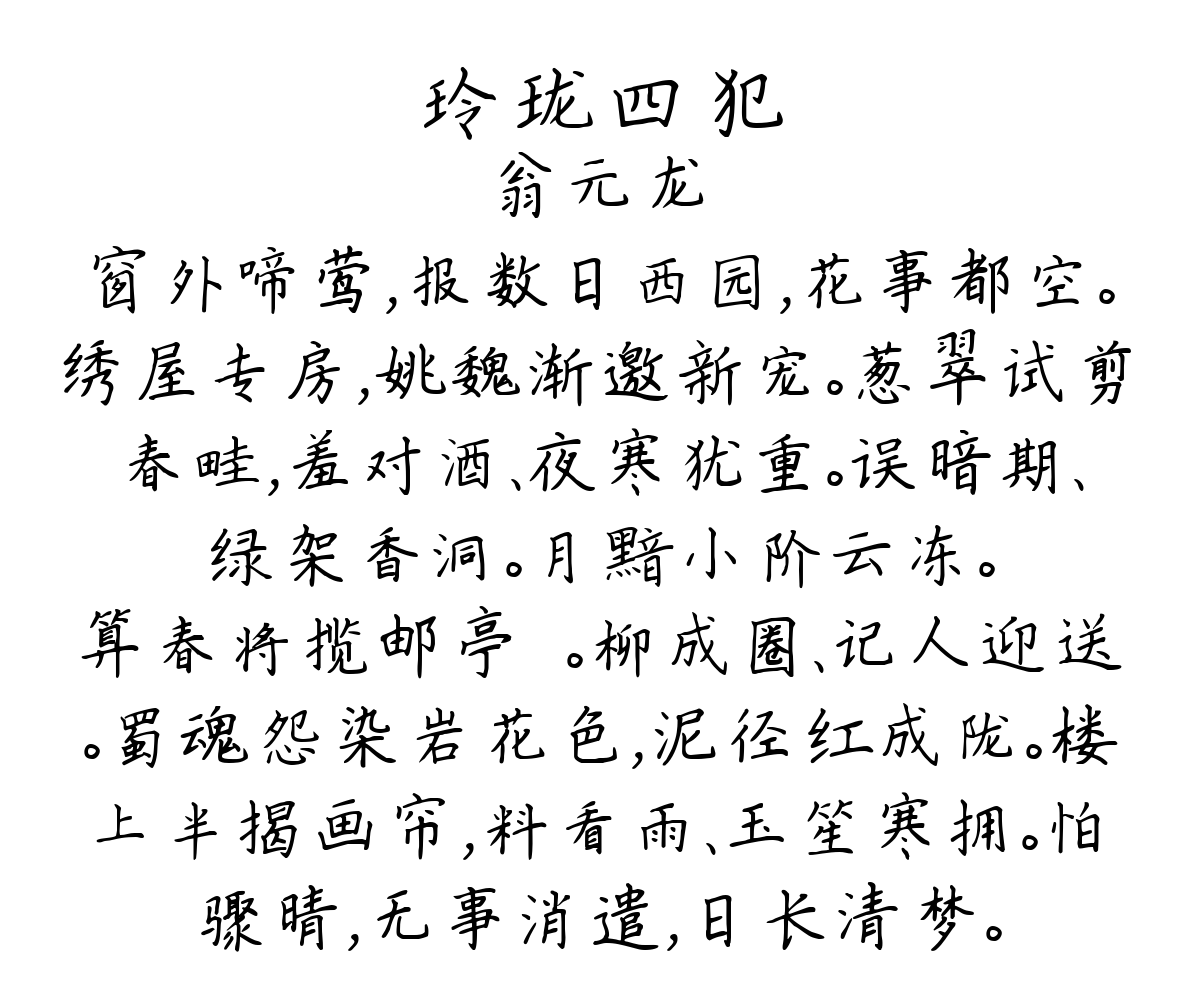 玲珑四犯
翁元龙
窗外啼莺,报数日西园,花事都空。
绣屋专房,姚魏渐邀新宠。葱翠试剪
春畦,羞对酒、夜寒犹重。误暗期、
绿架香洞。月黯小阶云冻。
算春将揽邮亭 。柳成圈、记人迎送
。蜀魂怨染岩花色,泥径红成陇。楼
上半揭画帘,料看雨、玉笙寒拥。怕
骤晴,无事消遣,日长清梦。